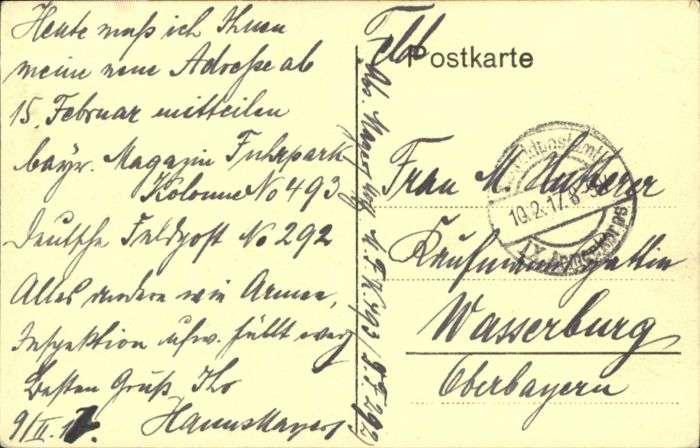 Heute muß ich Ihnen
meine neue Adresse ab
15. Februar mitteilen
bayr. Magazin Fuhrpark
Kolonne No 493
Deutsche Feldpost No 292
Alles andere wie Armee,
Inspektion usw. fällt weg
Besten Gruß Ihr
9/II. 17. Hanns Mayer
Feld Postkarte
Feldpostamt
10.2.17. 8
IX. Armeekorps
Frau M.
Kaufmannsgattin
Wasserburg
Oberbayern
Abs. Mayer M. F. K. 493 D. F. 292